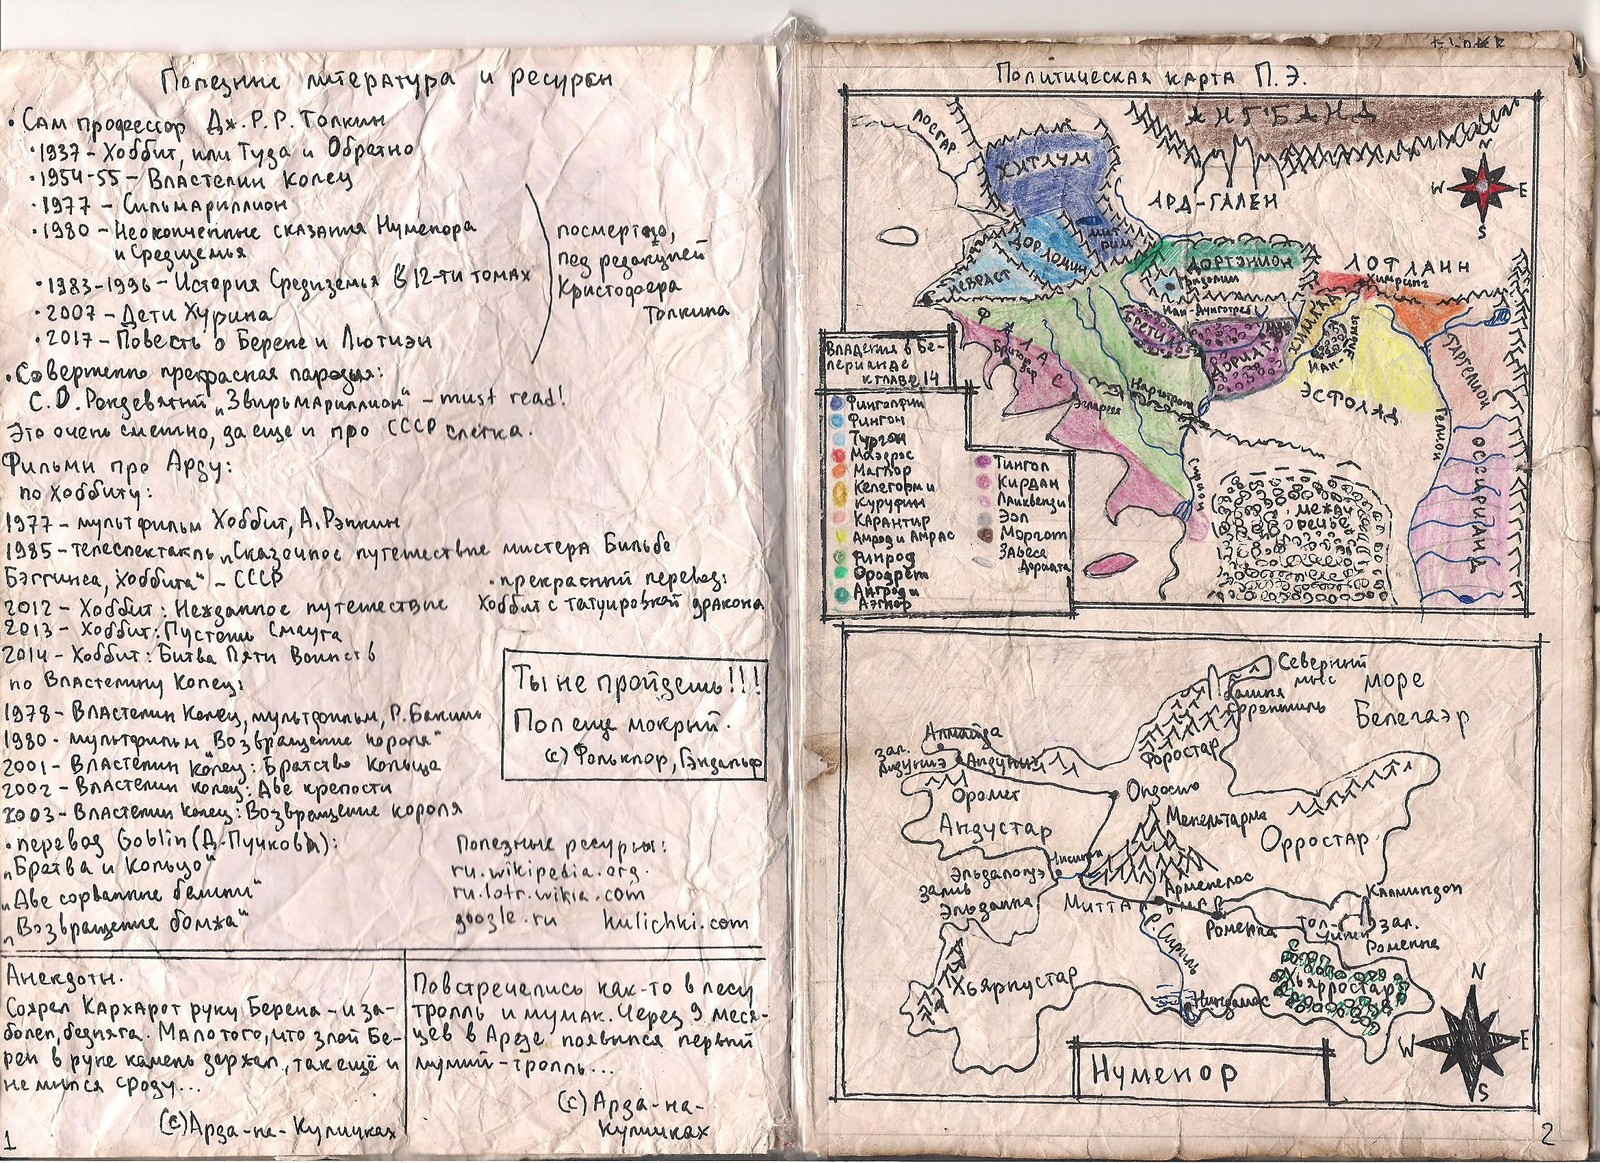 Полезные литература и ресурсы
• Сам профессор Дж. Р. Р. Толкин
• 1937 – Хоббит, или Туда и Обратно
• 1954-55 – Властелин Колец
• 1977 – Сильмариллион
• 1980 – Неоконченные сказания Нуменора
и Средиземья
• 1983-1996 – История Средиземья в 12-ти томах
• 2007 – Дети Хурина
• 2017 – Повесть о Берене и Лютиэн
посмертно,
под редакцией
Кристофера
Толкина
• Совершенно прекрасная пародия:
С. О. Рокдевятый „Звирьмариллион“ – must read!
Это очень смешно, да еще и про СССР слегка.
Фильмы про Арду:
по Хоббиту:
1977 – мультфильм Хоббит, А. Рэнкин
1985 – телеспектакль „Сказочное путешествие мистера Бильбо
Бэггинса, Хоббита“ – СССР
• прекрасный перевод:
Хоббит с татуировкой дракона
2012 – Хоббит: Нежданное путешествие
2013 – Хоббит: Пустошь Смауга
2014 – Хоббит: Битва Пяти Воинств
по Властелину Колец:
1978 – Властелин Колец, мультфильм, Р. Бакши
1980 – мультфильм „Возвращение короля“
2001 – Властелин колец: Братство Кольца
2002 – Властелин колец: Две крепости
2003 – Властелин Колец: Возвращение короля
Ты не пройдешь!!!
Пол еще мокрый.
(с) Фольклор, Гэндальф
• перевод Goblin (Д. Пучкова):
„Братва и Кольцо“
„Две сорванные башни“
„Возвращение бомжа“
Полезные ресурсы:
ru.wikipedia.org.
ru.lotr.wikia.com
google.ru kulichki.com
Анекдоты.
Сожрал Кархарот руку Берена – и за-
болел, бедняга. Мало того, что злой Бе-
рен в руке камень держал, так ещё и
не мылся сроду...
(с) Арда-на-Куличках
Повстречались как-то в лесу
тролль и мумак. Через 9 меся-
цев в Арде появился первый
мумий-тролль...
(с) Арда-на-
Куличках
1
Политическая карта П. Э.
АНГБАНД
ЛОСГАР
ХИТЛУМ
АРД-ГАЛЕН
W N E S
МИТ
РИМ
ДОР ЛОМИН
НЕВРАСТ
ДОРТОНИОН
Гондолин
ЛОТЛАНН
Химринг
Нан-Дунгортеб
ХИМЛАД
БРЕТИЛЬ
ДОРИАТ
Нан-
ФАЛАС
Бритомбар
Эгларест
Нарготронд
ЭСФОЛАД
ТАРГЕЛИОН
Гелион
Сирион
ОССИРИАНД
МЕЖДУ
РЕЧЬЕ
Владения в Бе-
лерианде
к главе 14
Финголфин
Фингон
Тургон
Маэдрос
Маглор
Келегорм и
Куруфин
Карантир
Амрод и Амрас
Финрод
Ородрет
Ангрод и
Аэгнор
Тингол
Кирдан
Лаиквенди
Эол
Моргот
Завеса
Дориата
Северный
мыс
МОРЕ
Белегаэр
Башня
Форостар
Алмайда
зал.
Андуниэ
Андуниэ
Оромет
Ондосто
Андустар
Менельтарма
Орростар
Нисинен
Эльдалондэ
залив
Эльданна
Арменелос
Миттальмар
Калминдон
Роменна
Тол-
Уинен
зал.
Роменна
р. Сириль
Хьярнустар
Ниндамос
Хьярростар
N W E S
Нуменор
2